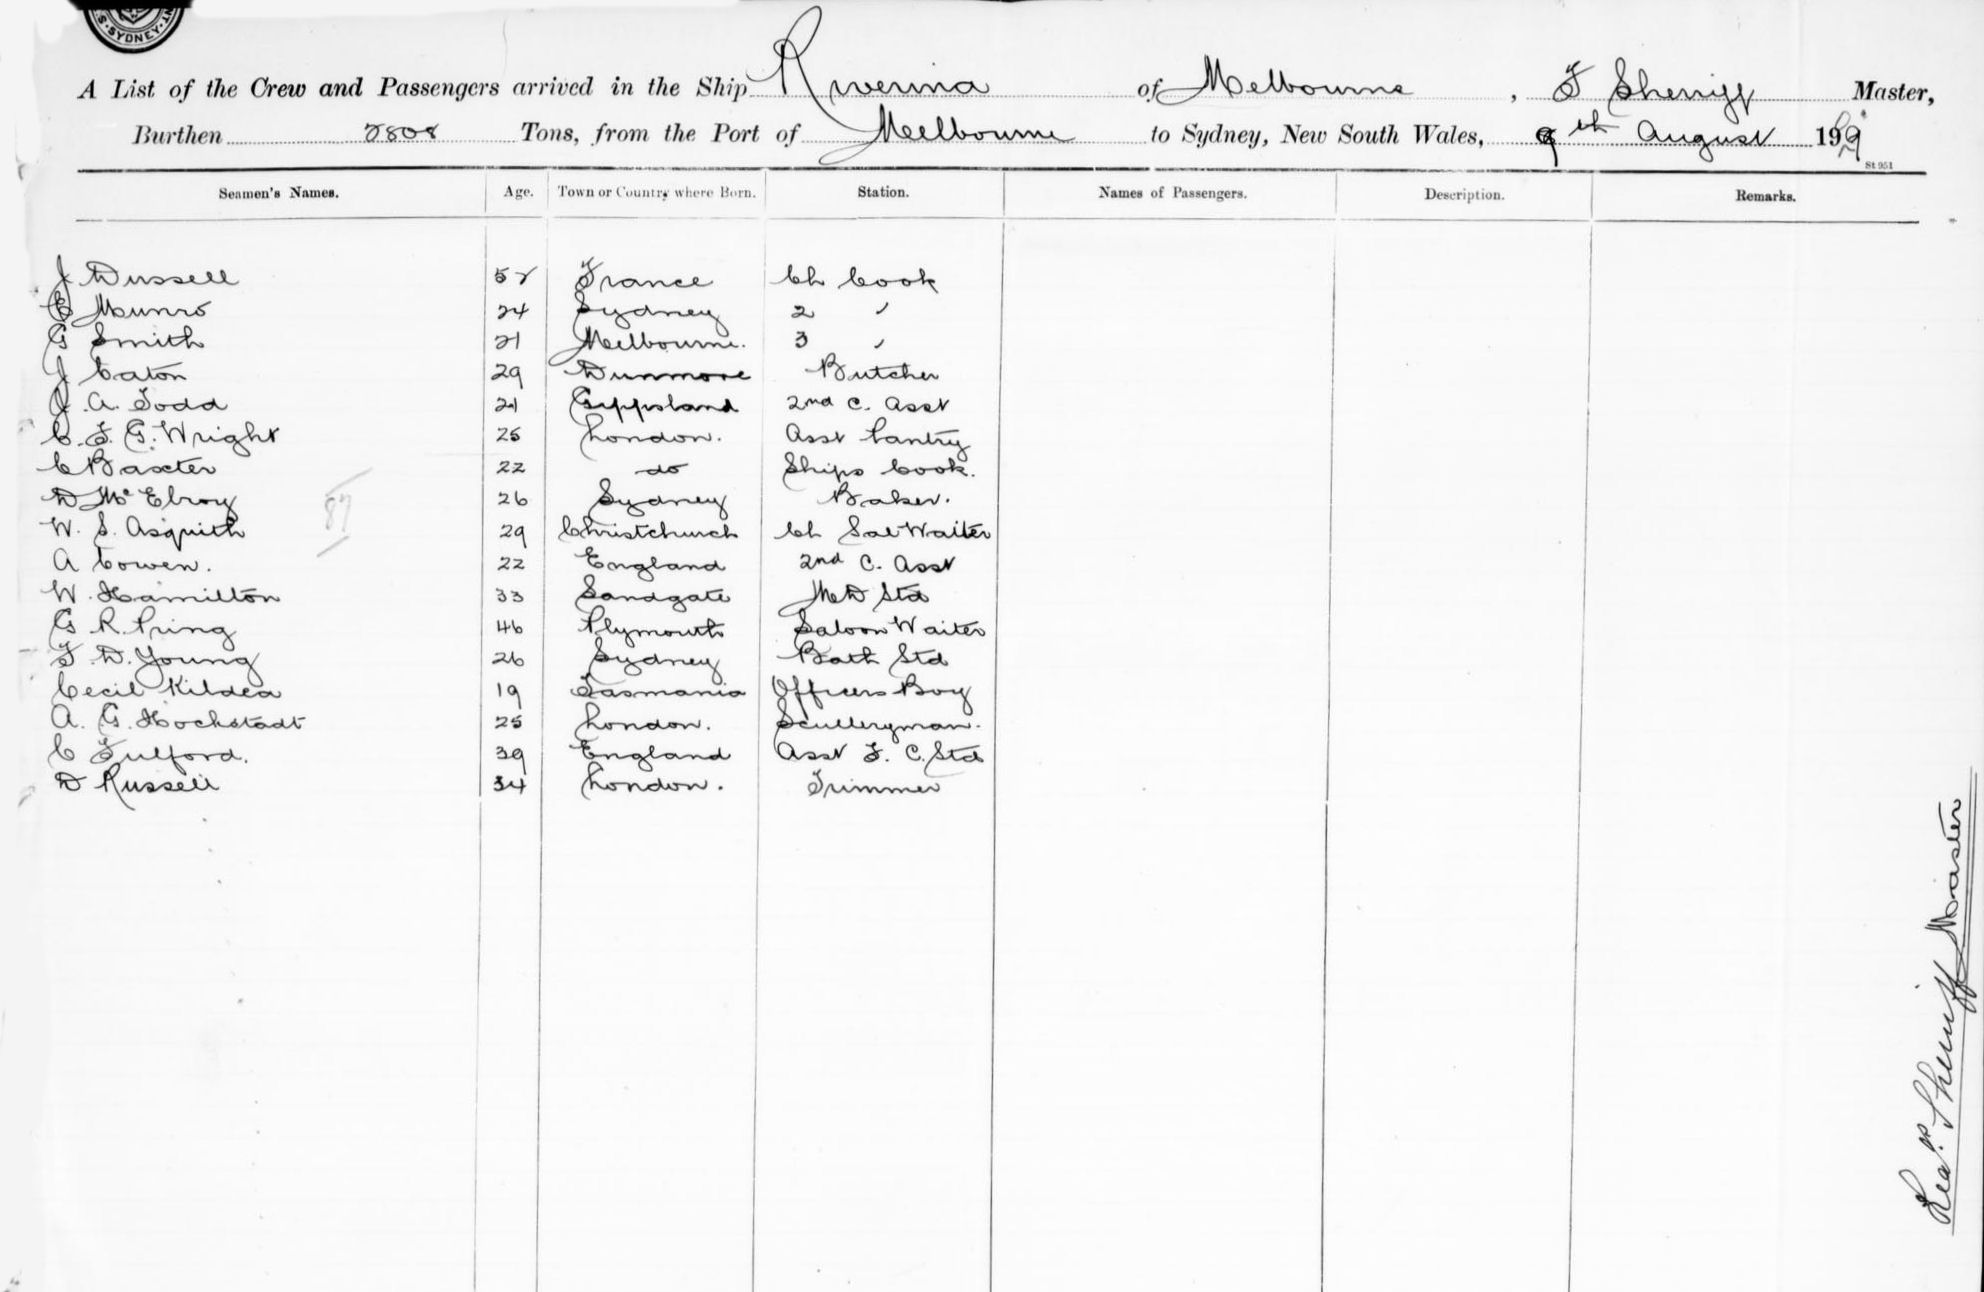 SYDNEY
A List of the Crew and Passengers arrived in the Ship Riverina of Melbourne, F Sherriff Master,
Burthen 2808 Tons, from the Port of Melbourne to Sydney, New South Wales, 9th August 1909
St 951
Seamen's Names. Age. Town or Country where Born. Station. Names of Passengers. Description. Remarks.
J Dussell 52 France Ch Cook
C Munro 24 Sydney 2 "
G Smith 21 Melbourne. 3 "
J Caton 29 Dunmore Butcher
J. A. Todd 21 Gippsland 2nd C. Asst
C. F. G. Wright 25 London. Asst Pantry
C Baxter 22 do Ships Cook.
D McElroy 26 Sydney Baker.
87
W. S. Asquith 29 Christchurch Ch Sal Waiter
A Cowen. 22 England 2nd C. Asst
W. Hamilton 33 Sandgate M D Std
G R. Pring 46 Plymouth Saloon Waiter
F. D. Young 26 Sydney Bath Std
Cecil Kildea 19 Tasmania Officers Boy
A. G. Hochstadt 25 London. Sculleryman.
C Fulford. 39 England Asst F. C. Std
D Russell 34 London. Trimmer
Sherriff Master